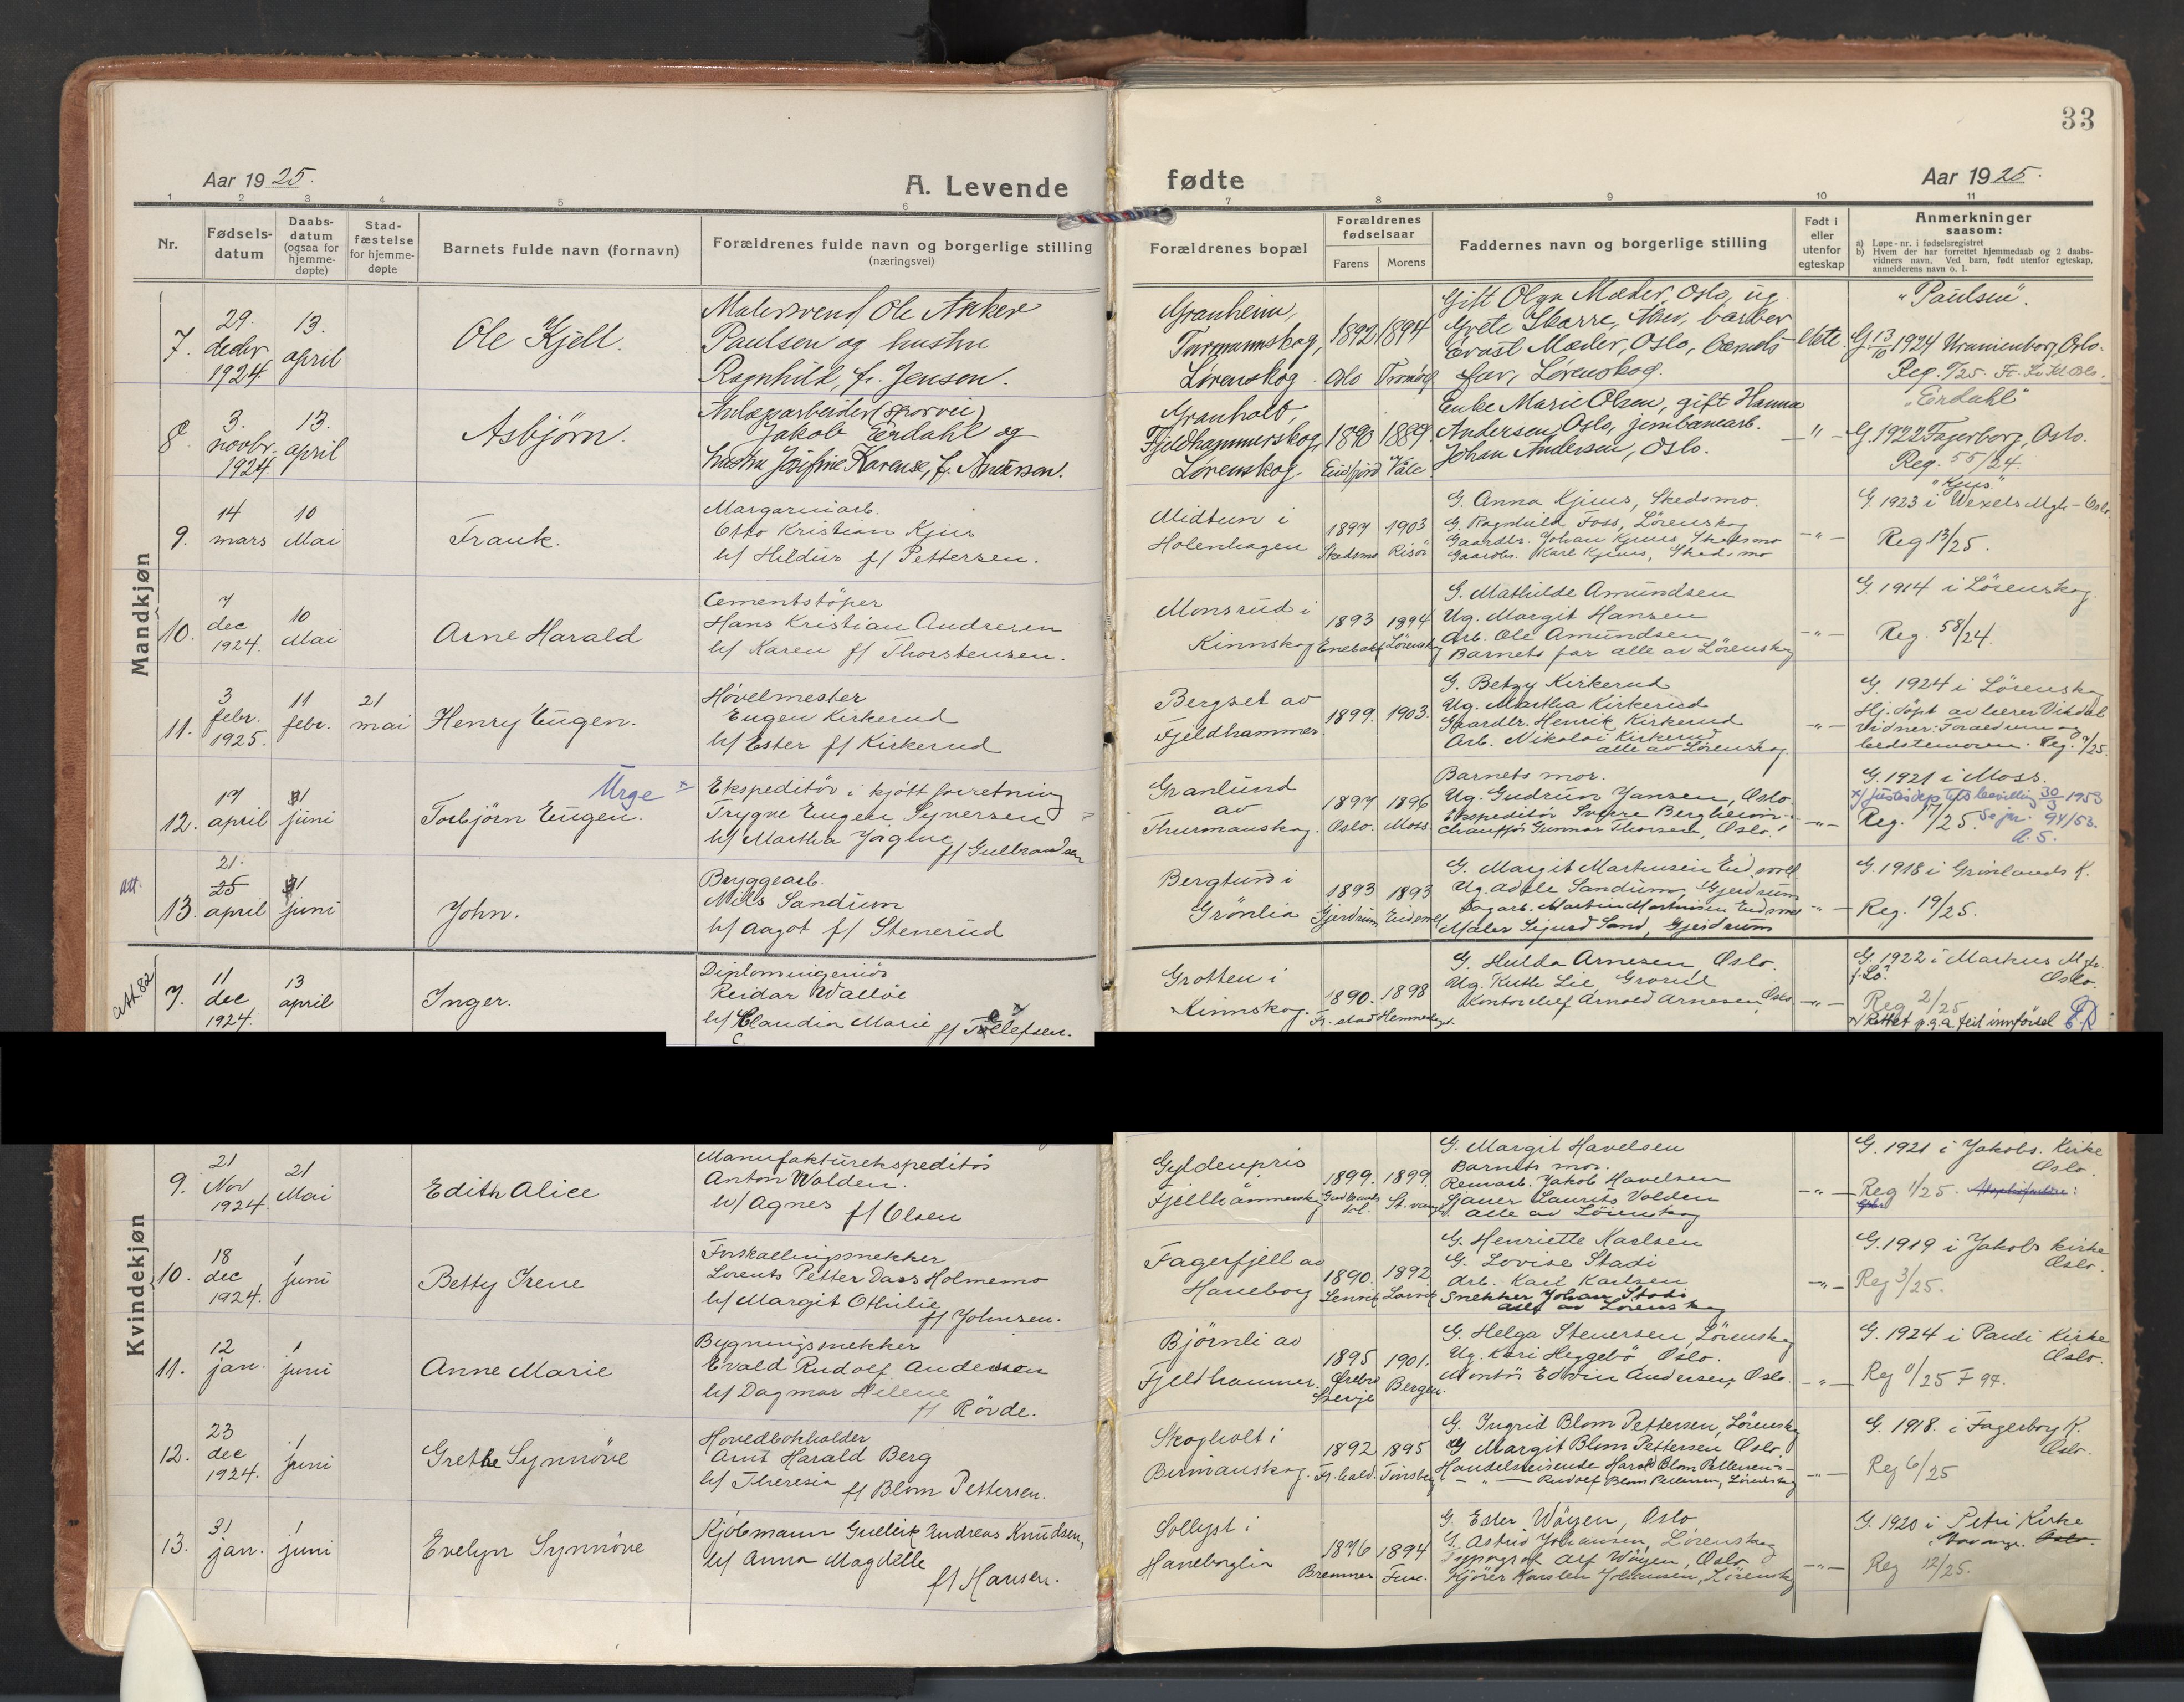 33
Aar 1925.
A. Levende
fødte
Aar 1925.
1 2 3 4 5 6 7 8 9 10 11
Nr.
Fødsels-
datum
Daabs-
datum
(ogsaa for
hjemme-
døpte)
Stad-
fæstelse
for hjemme-
døpte
Barnets fulde navn (fornavn)
Forældrenes fulde navn og borgerlige stilling
(næringsvei)
Forældrenes bopæl
Forældrenes
fødselsaar
Farens
Morens
Faddernes navn og borgerlige stilling
Født i
eller
utenfor
egteskap
Anmerkninger
saasom:
a) Løpe-nr. i fødselsregistret
b) Hvem der har forrettet hjemmedaab og 2 daabs-
vidners navn. Ved barn, født utenfor egteskap,
anmelderens navn o. l.
Mandkjøn
7.
29.
decbr.
1924.
13.
april
Ole Kjell.
Malersvend Ole Anker
Paulsen og hustru
Ragnhild, f. Jensen.
Granheim,
Turmannskog,
Lørenskog.
1892 1894
Oslo
Gift Olga Mæder, Oslo, ug.
Grete Skarre, barber
Mæder, Oslo, barnets
far, Lørenskog.
ekte
"Paulsen".
G. 13/10 1924 Uranienborg, Oslo.
Reg. /25.
8.
3.
novbr.
1924.
13.
april
Asbjørn.
Anlægsarbeider (sporvei)
Jakob Eirdahl og
hustru Josefine Karense, f. Andersen.
Granholt,
Fjeldhammerskog,
Lørenskog.
1890 1889
Eidfjord Våle
Enke Marie Olsen, gift Hanna
Andersen, Oslo, jernbanearb.
Johan Andersen, Oslo.
— " —
"Eirdahl"
G. 1922 Fagerborg, Oslo.
Reg. 55/24.
9.
14
mars
10
Mai
Frank.
Margarinarb.
Otto Kristian Kjus
h/ Hildur f/ Pettersen.
Midtun i
Holenhagen
1897 1903
Skedsmo Risør
G. Anna Kjus, Skedsmo.
G. Ragnhild Foss, Lörenskog
Gaardbr. Johan Kjus, Skedsmo
Gaardbr. Karl Kjus, Skedsmo
— " —
"Kjus"
G. 1923 i Wexels Mgh - Oslo.
Reg 13/25.
10.
7
dec
1924.
10
Mai
Arne Harald
Cementstöper
Hans Kristian Andresen
h/ Karen f/ Thorstensen.
Monsrud i
Kinnskog
1893 1894
Enebakk Lörenskog
G. Mathilde Amundsen
Ug. Margit Hansen
Arb. Ole Amundsen
Barnets far alle av Lörenskog
— " —
G. 1914 i Lörenskog.
Reg. 58/24.
11.
3
febr.
1925.
11
febr.
21
mai
Henry Eugen.
Hövelmester
Eugen Kirkerud
h/ Ester f/ Kirkerud
Bergset av
Fjeldhammer
1899. 1903.
G. Betzy Kirkerud
Ug. Martha Kirkerud
Gaardbr. Henrik Kirkerud
Arb. Nikolai Kirkerud
alle av Lörenskog.
— " —
G. 1924 i Lörenskog
Hj. döpt av lærer Vikdal
Vidner: Foreldrene og
bedstemoren. Reg. 7/25.
12.
17
april
1
juni
Torbjörn Eugen.
Urge x
Ekspeditör i kjöttforretning
Trygve Eugen Syversen
h/ Martha f/ Gulbrandsen
Granlund
av
Thurmanskog.
1897 1896
Oslo. Moss.
Barnets mor.
Ug. Gudrun Jansen, Oslo.
Ekspeditör Sverre Bergheim
Chauffør Gunnar Thorsen, Oslo.
— " —
G. 1921 i Moss.
x/ Justisdep. bevilling 30/3 1953
Reg. 17/25. Se jr. 94/53.
A. S.
Att.
13.
21.
25
april
1
juni
John.
Bryggearb.
Nils Sandum
h/ Aagot f/ Stenerud
Bergtun i
Grönlia
1893 1893
Gjerdrum Eidsvoll
G. Margit Martinsen Eidsvoll
Ug. Adele Sandum, Gjerdrum
Dagarb. Martin Martinsen Eidsvoll
Maler Sigurd Sand, Gjerdrum
— " —
G. 1918 i Grönlands K.
Reg. 19/25.
Att. 82
7.
11
dec
1924.
13
april
Inger.
Diplomingeniör
Reidar Wallöe
h/ Claudia Marie f/ Tollefsen.
Grotten i
Kinnskog.
1890. 1898
Fr. stad
G. Hulda Arnesen Oslo.
Ug. Ruth Lie, Grorud
Kontorchef Arnold Arnesen, Oslo.
— " —
G. 1922 i Markus Mgh.
Oslo.
Reg 2/25
x/ Rettet p.g.a. feil innførsel
Kvindekjøn
9.
21
Nov
1924
21
Mai
Edith Alice
Manufakturekspeditör
Anton Wolden.
h/ Agnes f/ Olsen
Gyldenpris
Fjellhammerskog
1899. 1899.
G. Margit Havelsen
Barnets mor.
Remarb. Jakob Havelsen
Sjauer Laurits Volden
alle av Lörenskog
— " —
G. 1921 i Jakobs. Kirke
Oslo.
Reg 1/25.
10.
18
dec
1924.
1
juni
Betty Irene
Forskallingssnekker
Lorents Petter Dass Holmemo
h/ Margit Othilie
f/ Johnsen.
Fagerfjell av
Haneborg
1890. 1892.
Lenvik Larvik
G. Henriette Karlsen
G. Lovise Stadi
Arb. Karl Karlsen
Snekker Johan Stadi
alle av Lörenskog
— " —
G. 1919 i Jakobs kirke
Oslo.
Reg 3/25.
11.
12
jan.
1
juni
Anne Marie
Bygningssnekker
Evald Rudolf Andersson
h/ Dagmar Helene
f/ Rövde.
Björnli av
Fjeldhammer.
1895 1901.
Örebro Bergen.
Sverje
G. Helga Stenersen, Lörenskog
Ug. Kari Heggebö Oslo.
Montör Edvin Andersen, Oslo.
— " —
G. 1924 i Pauli Kirke
Oslo.
Reg /25 F 97.
12.
23
dec
1924.
1
juni
Grethe Synnöve
Hovedbokholder
Arnt Harald Berg
h/ Theresia f/ Blom Pettersen.
Skogholt i
Burmanskog.
1892 1895
Fr. hald. Tönsberg
G. Ingrid Blom Pettersen, Lörenskog
G Margit Blom Pettersen Oslo
Handelsreisende Harald Blom Pettersen
— " — Rudolf Blom Pettersen, Lörenskog
— " —
G. 1918. i Fagerborg K.
Oslo.
Reg 6/25
13.
31
jan.
1
juni
Evelyn Synnöve
Kjöbmann Gullik Andreas Knudsen,
h/ Anna Magdelle
f/ Hansen.
Sollyst i
Haneborglia
1896 1894
Bremnes
G. Ester Wöyen, Oslo
G. Astrid Johansen, Lörenskog
Typograf Alf Wöyen, Oslo
Kjörer Karsten Johansen, Lörenskog
— " —
G. 1920 i Petri Kirke
Stavanger. Oslo.
Reg 12/25.